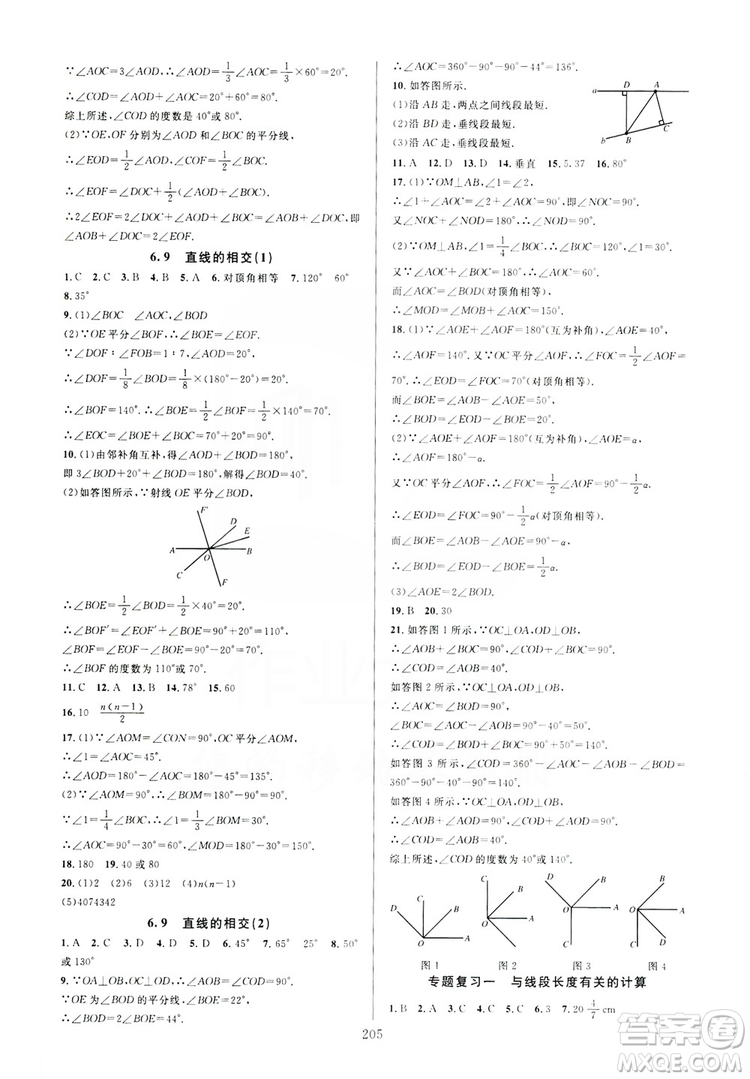 ∵∠AOC=3∠AOD,∴∠AOD=$\frac{1}{3}$∠AOC=$\frac{1}{3}$×60°=20°.
∴∠COD=∠AOC+∠AOD=60°+20°=80°.
综上所述,∠COD的度数是40°或80°.
(2)∵OE,OF分别为∠AOD和∠BOC的平分线,
∴∠EOD=$\frac{1}{2}$∠AOD,∠COF=$\frac{1}{2}$∠BOC.
∴∠EOF=$\frac{1}{2}$∠AOD+$\frac{1}{2}$∠BOC+∠COD.
∴2∠EOF=∠AOD+∠BOC+∠COD+∠COD,即
2∠EOF=∠AOB+∠COD.
∴∠AOB+∠COD=2∠EOF.
6.9 直线的相交(1)
1.C 2.C 3.B 4.B 5.A 6.对顶角相等 7.120° 60°
8.35°
9.(1)∠BOC ∠AOC,∠BOD
(2)∵OE平分∠BOF,∴∠BOE=∠EOF.
∵∠DOF:∠FOB=1:7,∠AOC=∠BOD,
∴∠DOF=$\frac{1}{8}$∠BOD=$\frac{1}{8}$×(180°−20°)=20°.
∴∠BOF=140°.∴∠BOE=$\frac{1}{2}$∠BOF=$\frac{1}{2}$×140°=70°.
∴∠EOC=∠BOC+∠BOE=70°+20°=90°.
10.(1)由邻补角互补,得∠AOD+∠BOD=180°.
即3∠BOD+∠BOD+20°=180°,解得∠BOD=40°.
(2)如答图所示,∵射线OE平分∠BOD,
F′
D
E
A O B
C
F
∴∠BOE=$\frac{1}{2}$∠BOD=$\frac{1}{2}$×40°=20°.
∴∠BOF′=∠EOF′+∠BOE=90°+20°=110°.
∠BOF=∠EOF−∠BOE=90°−20°=70°.
∴∠BOF的度数为110°或70°.
11.C 12.A 13.B 14.78° 15.60
16.10 $\frac{n(n-1)}{2}$
17.(1)∵∠AOM=∠CON=90°,OC平分∠AOM,
∴∠1=∠AOC=45°.
∴∠AOD=180°−∠AOC=180°−45°=135°.
(2)∵∠AOM=90°,∴∠BOM=180°−90°=90°.
∵∠1=$\frac{1}{4}$∠BOC,∴∠1=$\frac{1}{3}$∠BOM=30°.
∴∠AOC=90°−30°=60°,∠MOD=180°−30°=150°.
18.180 19.40或80
20.(1)2 (2)6 (3)12 (4)n(n−1)
(5)4074342
6.9 直线的相交(2)
1.A 2.C 3.D 4.A 5.D 6.45° 7.65° 25° 8.50°
或130°
9.∵OA⊥OB,∴∠AOB=90°.
∴∠BOC=∠AOC−∠AOB=22°.
∴∠BOD=2∠BOC=44°.
∴∠AOC=360°−90°−90°−44°=136°.
10.如答图所示.
(1)沿AB走,两点之间线段最短.
(2)沿BD走,垂线段最短.
(3)沿AC走,垂线段最短.
a D A
b B C
11.A 12.D 13.D 14.垂直 15.5.37 16.80°
17.(1)∵OM⊥AB,∠1=∠2,
∴∠1+∠AOC=∠2+∠AOC=90°.
又∠NOC+∠NOD=180°,
∴∠NOD=180°−∠NOC=180°−90°=90°.
(2)∵OM⊥AB,∠1=$\frac{1}{4}$∠BOC,
∴∠1=30°,∠BOC=120°.
又∠1+∠AOC=90°,∴∠AOC=60°.
而∠AOC=∠BOD,
∴∠MOD=∠MOB+∠BOD=150°.
18.(1)∵∠AOE+∠AOF=180°(互为补角),∠AOE=40°,
∴∠AOF=140°.又∵OC平分∠AOF,∴∠FOC=$\frac{1}{2}$∠AOF=
70°.∴∠EOD=∠FOC=70°(对顶角相等).
而∠BOE=∠AOB−∠AOE=50°,
∴∠BOD=∠EOD−∠BOE=20°.
(2)∵∠AOE+∠AOF=180°(互为补角),∠AOE=α,
∴∠AOF=180°−α.
又∵OC平分∠AOF,∴∠FOC=$\frac{1}{2}$∠AOF=90°−$\frac{1}{2}$α.
∴∠EOD=∠FOC=90°−$\frac{1}{2}$α(对顶角相等).
而∠BOE=∠AOB−∠AOE=90°−α,
∴∠BOD=∠EOD−∠BOE=$\frac{1}{2}$α.
(3)∠AOE=2∠BOD.
19.B 20.30
21.如答图1所示,∵OC⊥OA,OD⊥OB,
∴∠AOB+∠BOC=∠COD+∠BOC=90°.
∴∠COD=∠AOB=40°.
如答图2所示,∵OC⊥OA,OD⊥OB,
∴∠COD=∠AOC+∠AOD=90°+90°−40°=140°.
如答图3所示,∵OC⊥OA,OD⊥OB,
∴∠COD=360°−∠AOC−∠BOD−∠AOB=
360°−90°−90°−40°=140°.
如答图4所示,∵OC⊥OA,OD⊥OB,
∴∠AOC+∠AOD=∠AOB+∠AOD=90°.
∴∠COD=∠AOB=40°.
综上所述,∠COD的度数为40°或140°.
D C B O A
C B O A D
D B O A C
C B O A D
图1 图2 图3 图4
专题复习一 与线段长度有关的计算
1.B 2.A 3.D 4.C 5.C 6.3 7.20 $\frac{4}{7}$ cm
205
答案圈
MXQE.COM